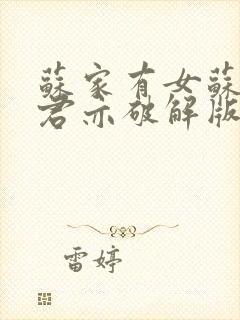 蘇家有女蘇
君亦破解版
雷婷